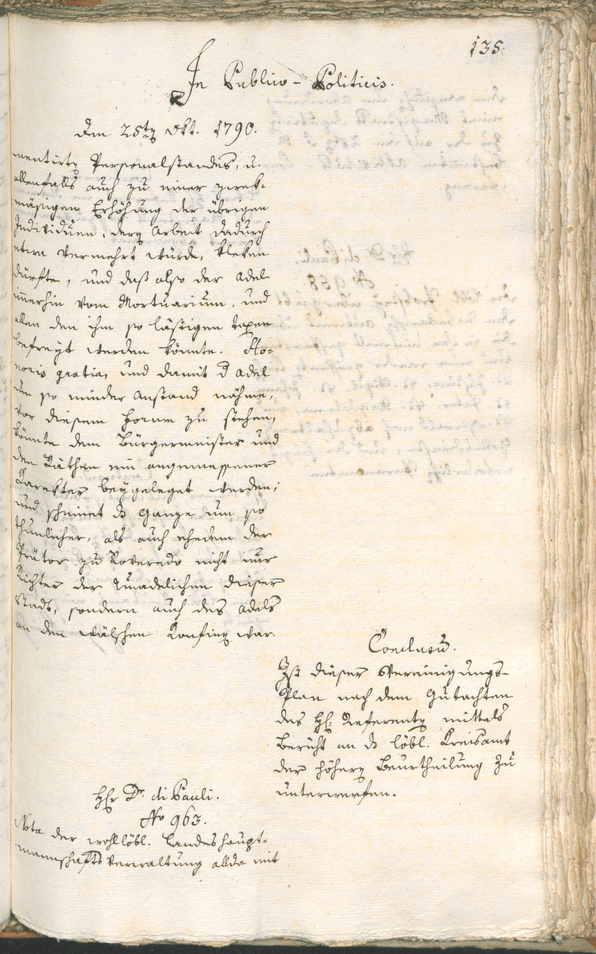 135.
In Publico-Politicis.
Den 25ten Okt. 1790.
mentirten Personalstandes, u.
allenfalls auch zu einer zwek-
mäsigen Erhöhung der übrigen
Individuen, deren Arbeit dadurch
etwa vermehrt würde, kleken
dürfte, und daß also der Adel
immerhin vom Mortuarium, und
allen den ihm so lästigen Taxen
befreyt werden könnte. Ho-
noris gratia, und damit d Adel
um so minder Anstand nähme,
vor diesem Forum zu stehen,
könnte dem Bürgermeister und
den Räthen ein angemessener
Karakter beygeleget werden;
und scheinet ds Ganze um so
thunlicher, als auch ehedem der
Prätor zu Roveredo nicht nur
Richter der Unadelichen dieser
Stadt, sondern auch des Adels
an den wälschen Confinen war.
Conclusū.
Ist dieser Vereinigungs-
Plan nach dem Gutachten
des H: Referenten mittels
Bericht an ds löbl. Kreisamt
der höhern Beurtheilung zu
unterwerfen.
Hr Dr. di Pauli.
No 963.
Nota der wohllöbl. Landeshaupt-
mannschafts Verwaltung allda mit